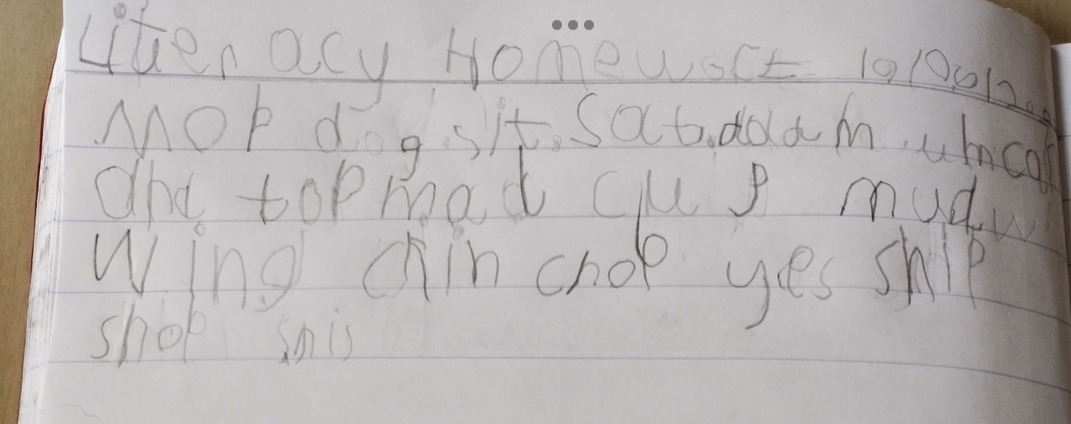 Literacy Homework
mop dog sit sat dad m um cat
and top mad cup mud w
wing chin chop yes ship
shop